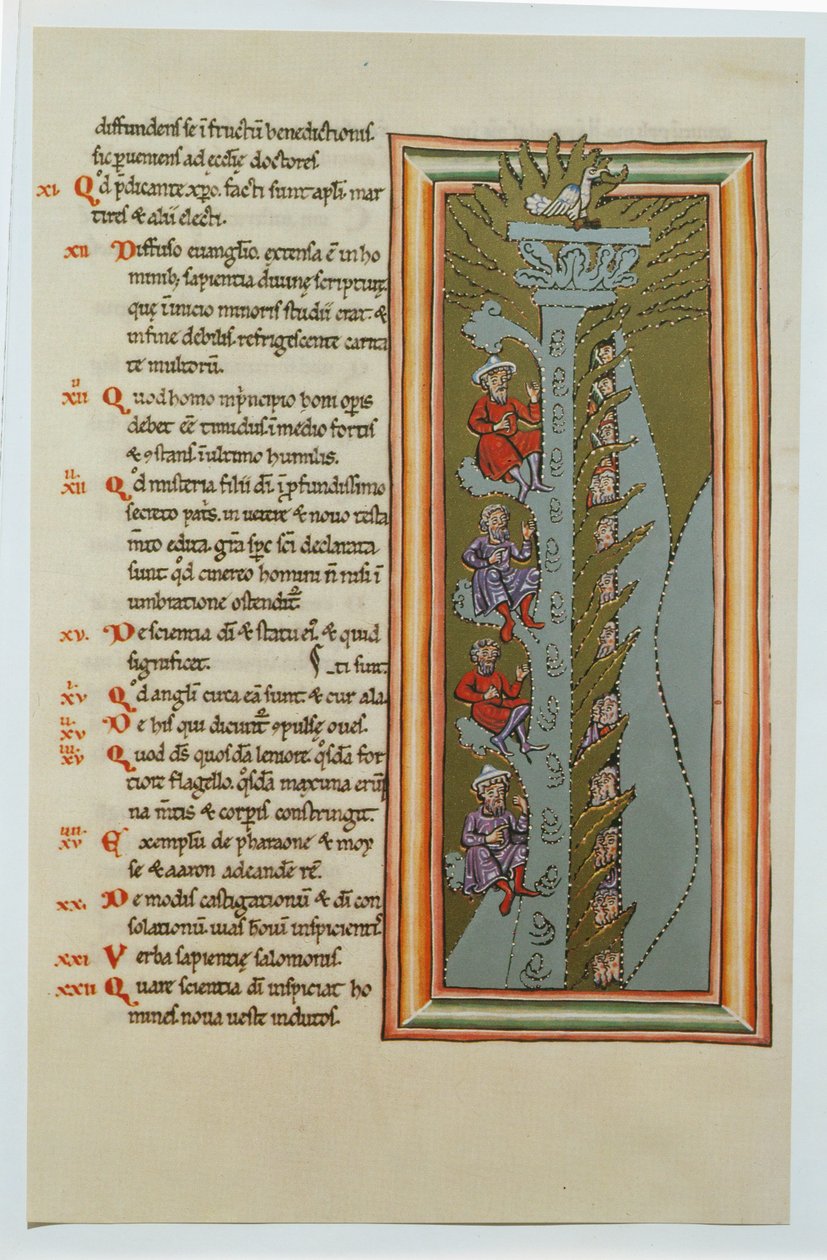 diffundens se ī fructū benedictionis.
sic ꝑueniens ad ecclię doctores.
xi. Qd p̄dicante xpo. facti sunt apli. mar
tires & alii electi.
xii Diffuso euanglio. extensa ē in ho
minib; sapientia diuinę scripturę.
quę ī inicio minoris studii erat. &
in fine debilis. refrigescente carita
te multorū.
xiii Quod homo in principio boni operis
debet eē timidus. ī medio fortis
& ꝯstans. ī ultimo humilis.
xiiii Qd misteria filii dī. ī ꝓfundissimo
secreto patris. in uetere & nouo testa
mto edita. gra spc sci declarata
sunt. qd cinereo homini n̄ nisi ī
umbratione ostendit̃.
xv. De scientia dī & statu ei. & quid
significet. ti sunt.
xvi Qd angli circa eā sunt. & cur ala
xvii De his qui dicunt̃ ꝯpulsę oues.
xviii Quod ds quosdā leniore. qsdā for
tiore flagello. qsdā maxima erūp
na mtis & corpis constringit.
xviiii Exemplū de pharaone & moy
se & aaron ad eandē rē.
xx. De modis castigationū & dī con
solationū. uias hoīum inspicientis.
xxi Verba sapientię salomonis.
xxii Quare scientia dī inspiciat ho
mines noua ueste indutos.